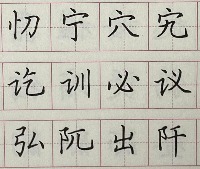 忉宁穴宄
讫训必议
弘阢出阡